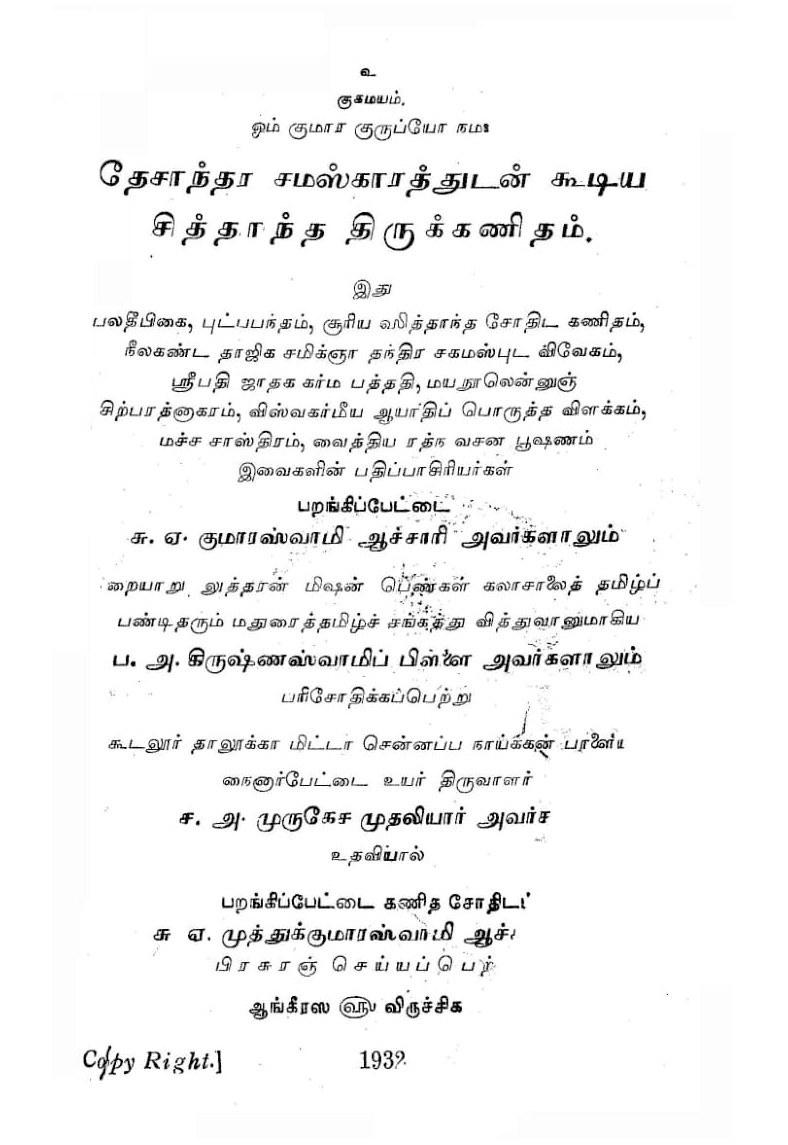 உ
குகமயம்.
ஓம் குமார குருப்யோ நமஃ
தேசாந்தர சமஸ்காரத்துடன் கூடிய
சித்தாந்த திருக்கணிதம்.
இது
பலதீபிகை, புட்பபந்தம், சூரிய ஸித்தாந்த சோதிட கணிதம்,
நீலகண்ட தாஜிக சமிக்ஞா தந்திர சகமஸ்புட விவேகம்,
ஸ்ரீபதி ஜாதக கர்ம பத்ததி, மயநூலென்னுஞ்
சிற்பரத்னாகரம், விஸ்வகர்மீய ஆயாதிப் பொருத்த விளக்கம்,
மச்ச சாஸ்திரம், வைத்திய ரத்ந வசன பூஷணம்
இவைகளின் பதிப்பாசிரியர்கள்
பறங்கிப்பேட்டை
சு. ஏ. குமாரஸ்வாமி ஆச்சாரி அவர்களாலும்
றையாறு லுத்தரன் மிஷன் பெண்கள் கலாசாலைத் தமிழ்ப்
பண்டிதரும் மதுரைத்தமிழ்ச் சங்கத்து வித்துவானுமாகிய
ப. அ. கிருஷ்ணஸ்வாமிப் பிள்ளை அவர்களாலும்
பரிசோதிக்கப்பெற்று
கூடலூர் தாலூக்கா மிட்டா சென்னப்ப நாய்க்கன் பாளைய
நைனார்பேட்டை உயர் திருவாளர்
ச. அ. முருகேச முதலியார் அவர்
உதவியால்
பறங்கிப்பேட்டை கணித சோதிட
சு ஏ. முத்துக்குமாரஸ்வாமி ஆச்
பிரசுரஞ் செய்யப்பெற்
ஆங்கீரஸ ௵ விருச்சிக
Copy Right.] 1932